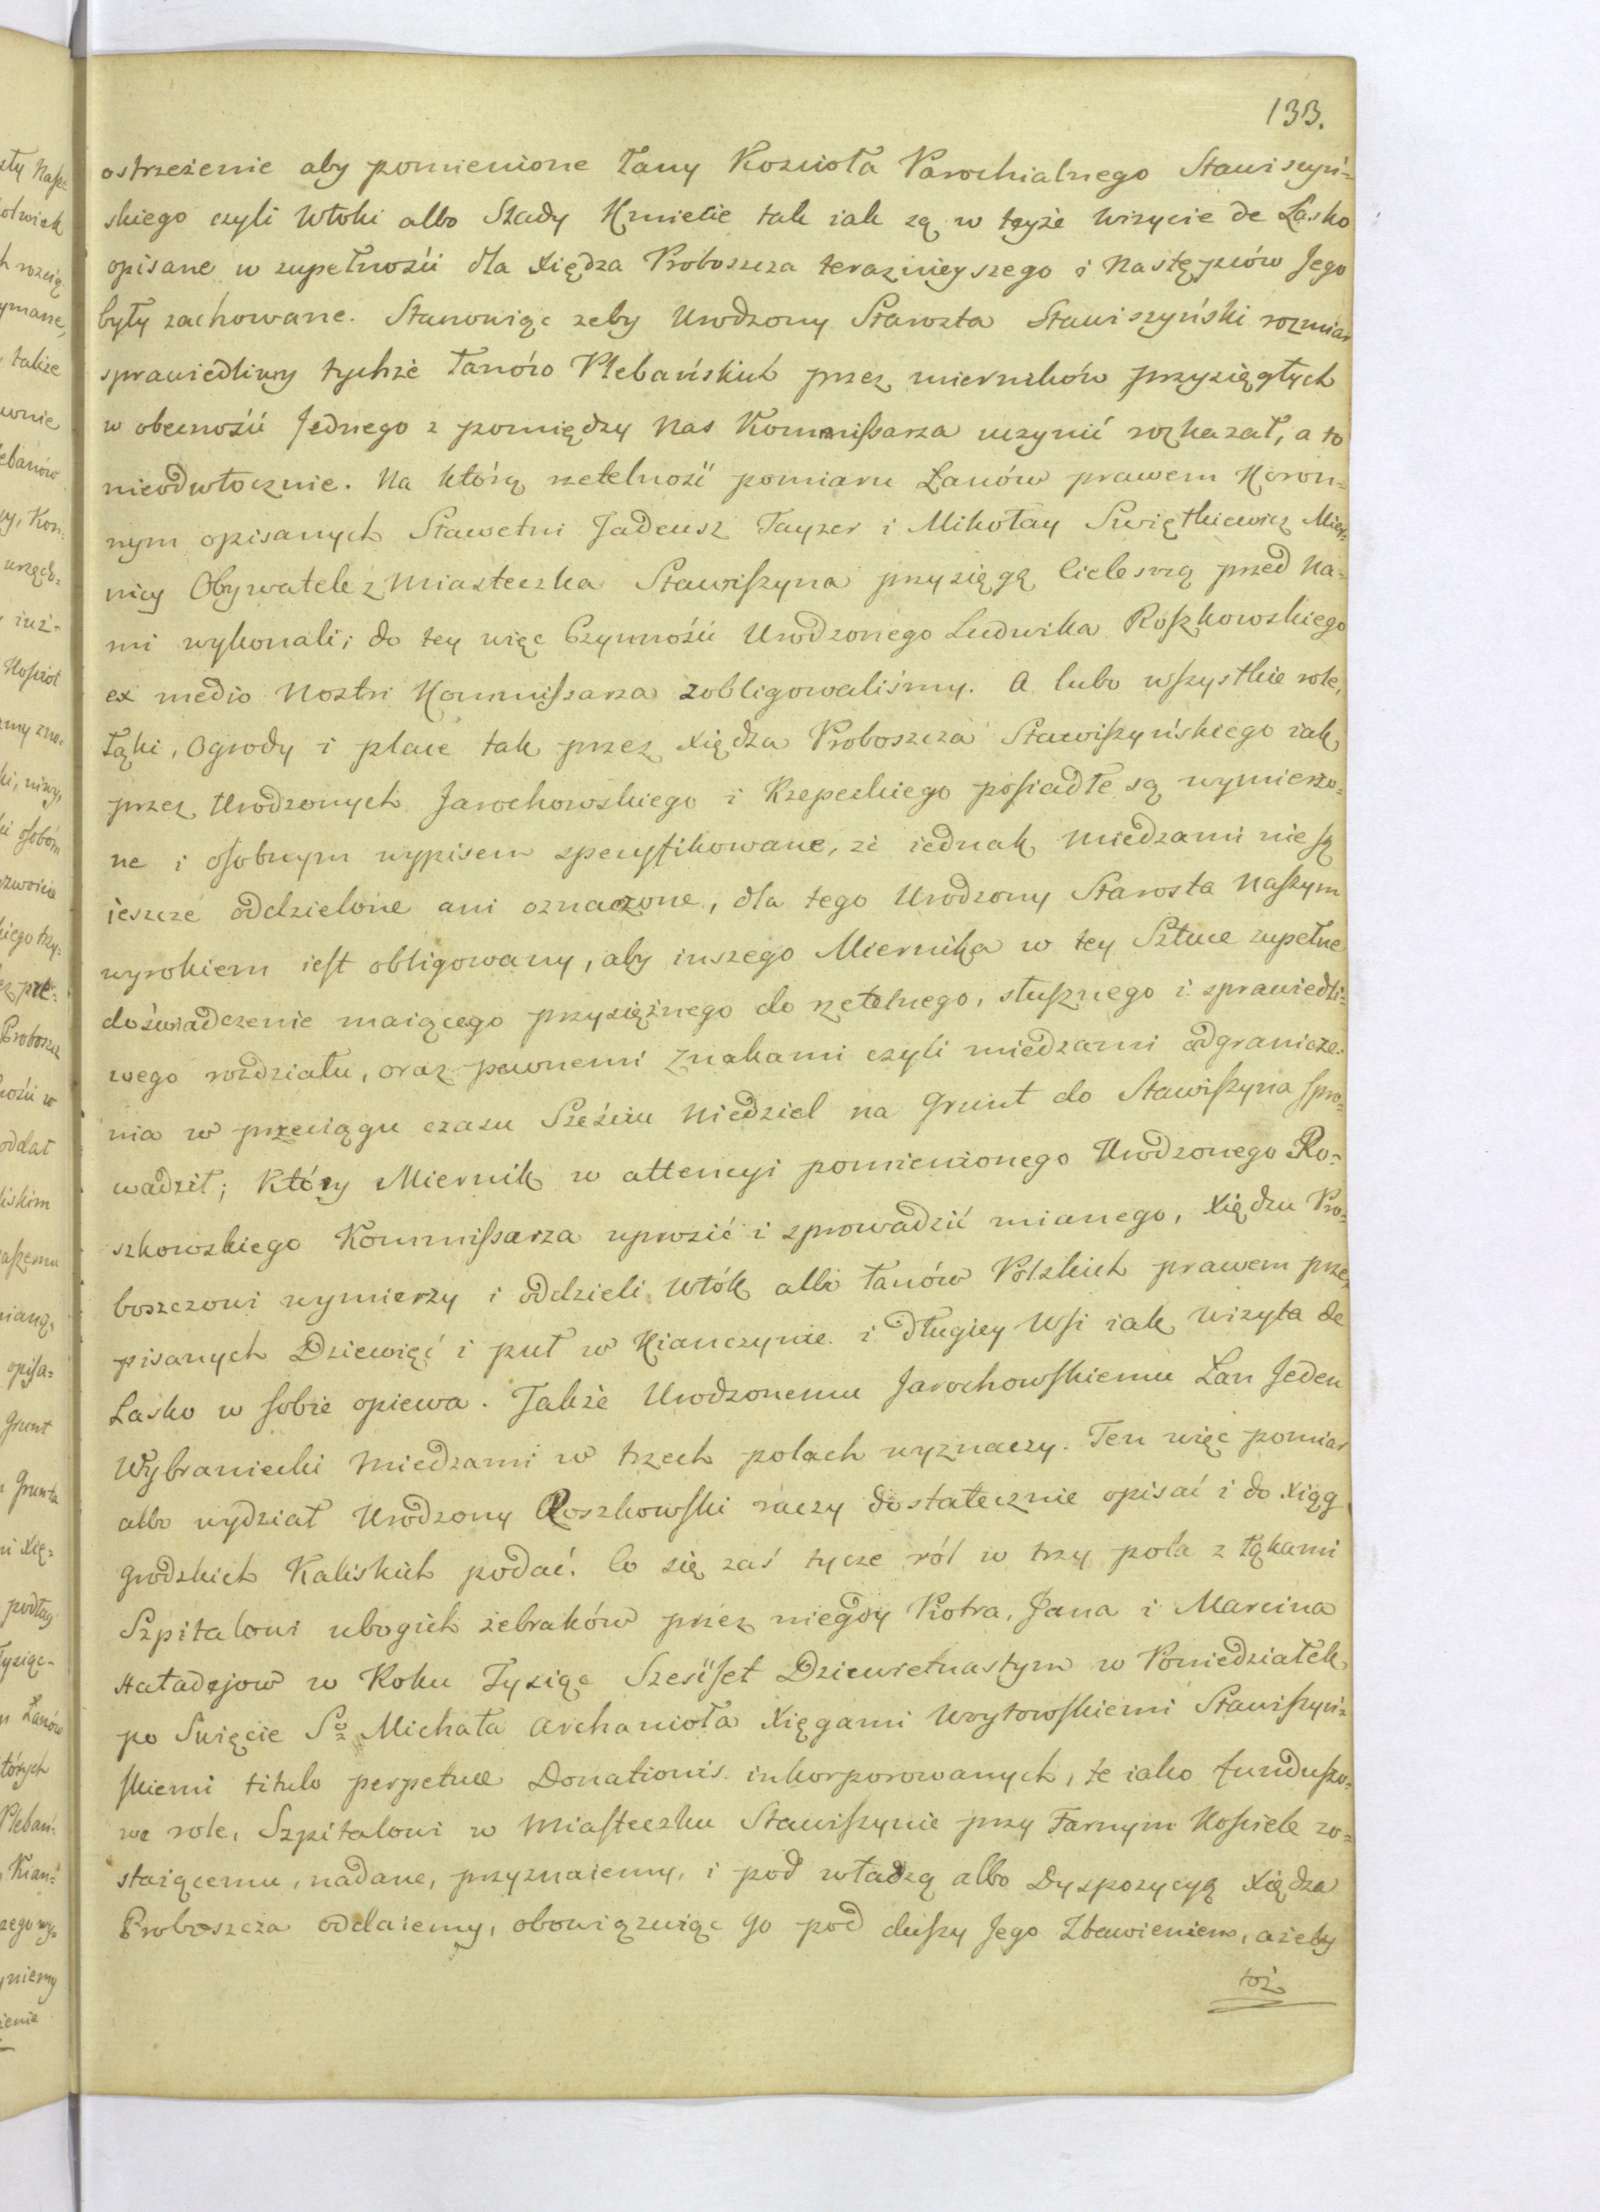 133.
ostrzeżenie aby pomienione Łany Kozcioła Parochialnego Stawiszyń-
skiego czyli Włoki albo Szlady Kmiecie tak iak są w teyże Wizycie de Lasko
opisane w zupełności dla Xiędza Proboszcza teraznieyszego i Następców Jego
były zachowane. Stanowiąc zeby Urodzony Starosta Stawiszyński rozmiar
sprawiedliwy tychże Łanów Plebańskich przez mierników przysięgłych
w obecności Jednego z pomiędzy Nas Kommissarza uczynić rozkazał, a to
nieodwłocznie. Na którą rzetelność pomiaru Łanów prawem Koron-
nym opisanych Sławetni Tadeusz Tayzer i Mikołay Swiętkiewicz Mier-
nicy Obywatele z Miasteczka Stawiszyna przysięgą Cielesną przed Na-
mi wykonali; do tey więc Czynności Urodzonego Ludwika Roszkowskiego
ex medio Nostri Kommissarza zobligowaliśmy. A lubo wszystkie role,
Łąki, Ogrody i place tak przez Xiędza Proboszcza Stawiszyńskiego iak
przez Urodzonych Jarochowskiego i Rzepeckiego posiadłe są wymierzo-
ne i osobnym wypisem specyfikowane, że iednak Miedzami nie są
ieszcze oddzielone ani oznaczone, dla tego Urodzony Starosta Naszym
wyrokiem iest obligowany, aby inszego Miernika w tey Sztuce zupełne
doświadczenie maiącego przysiężnego do rzetelnego, słusznego i sprawiedli-
wego rozdziału, oraz pewnemi Znakami czyli miedzami odgranicze-
nia w przeciągu czasu Sześciu Niedziel na Grunt do Stawiszyna spro-
wadził; Który Miernik w attencyi pomienionego Urodzonego Ro-
szkowskiego Kommissarza uprosić i sprowadzić mianego, Xiędzu Pro-
boszczowi wymierzy i oddzieli Włók albo Łanów Polskich prawem prze-
pisanych Dziewięć i puł w Kianczynie i długiey Wsi iak Wizyta de
Lasko w sobie opiewa. Także Urodzonemu Jarochowskiemu Łan Jeden
Wybraniecki Miedzami w trzech polach wyznaczy. Ten więc pomiar
albo wydział Urodzony Roszkowski raczy dostatecznie opisać i do Xiąg
Grodzkich Kaliskich podać. Co się zaś tycze ról w trzy pola z łąkami
Szpitalowi ubogich żebraków przez niegdy Piotra, Jana i Marcina
Hatadejow w Roku Tysiąc Sześćset Dziewietnastym w Poniedziałek
po Swięcie S<sup>o</sup> Michała Archanioła Xięgami Woytowskiemi Stawiszyń-
skiemi titulo perpetuæ Donationis inkorporowanych, te iako funduszo-
we role, Szpitalowi w Miasteczku Stawiszynie przy Farnym Kościele zo-
staiącemu, nadane, przyznaiemy, i pod władzą albo Dyspozycyą Xiędza
Proboszcza oddaiemy, obowiązuiąc go pod duszy Jego Zbawieniem, ażeby
toż